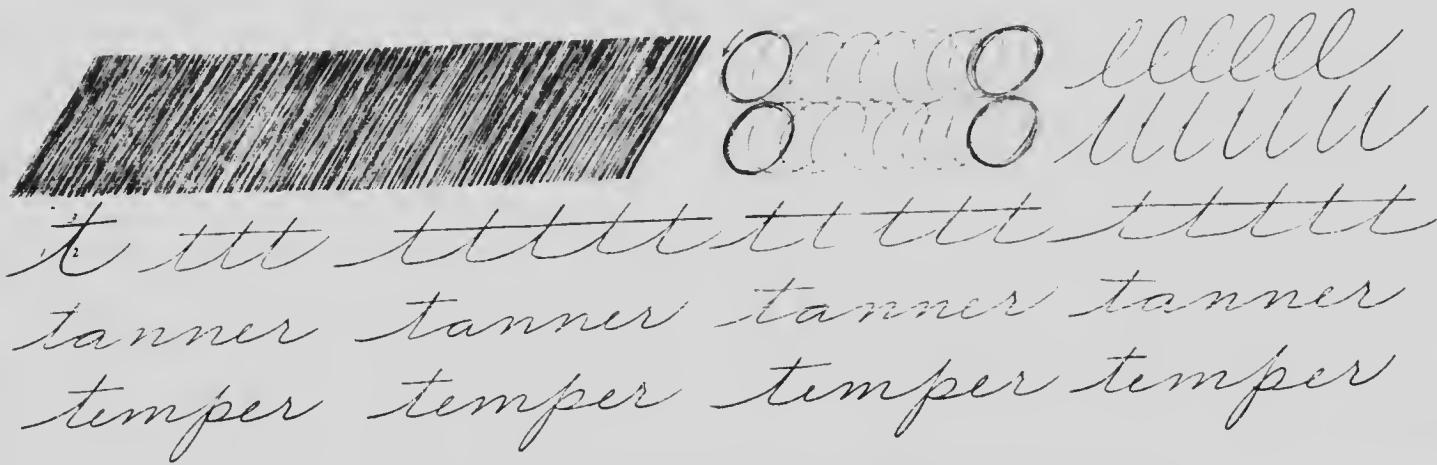 llllll
t ttt ttttt tt ttt ttttt
tanner tanner tanner tanner
temper temper temper temper